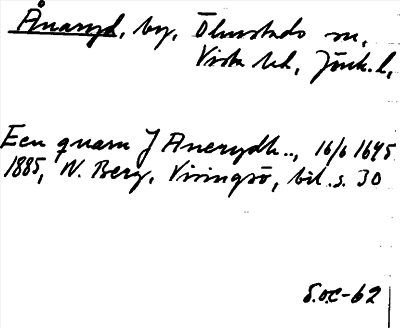 Ånaryd, by, Ölmstads sn,
Vista hd, Jönk.l,
Een quarn J Anerydh.., 16/6 1645
1885, N. Berg, Visingsö, bil.s. 30
S.O.C-62